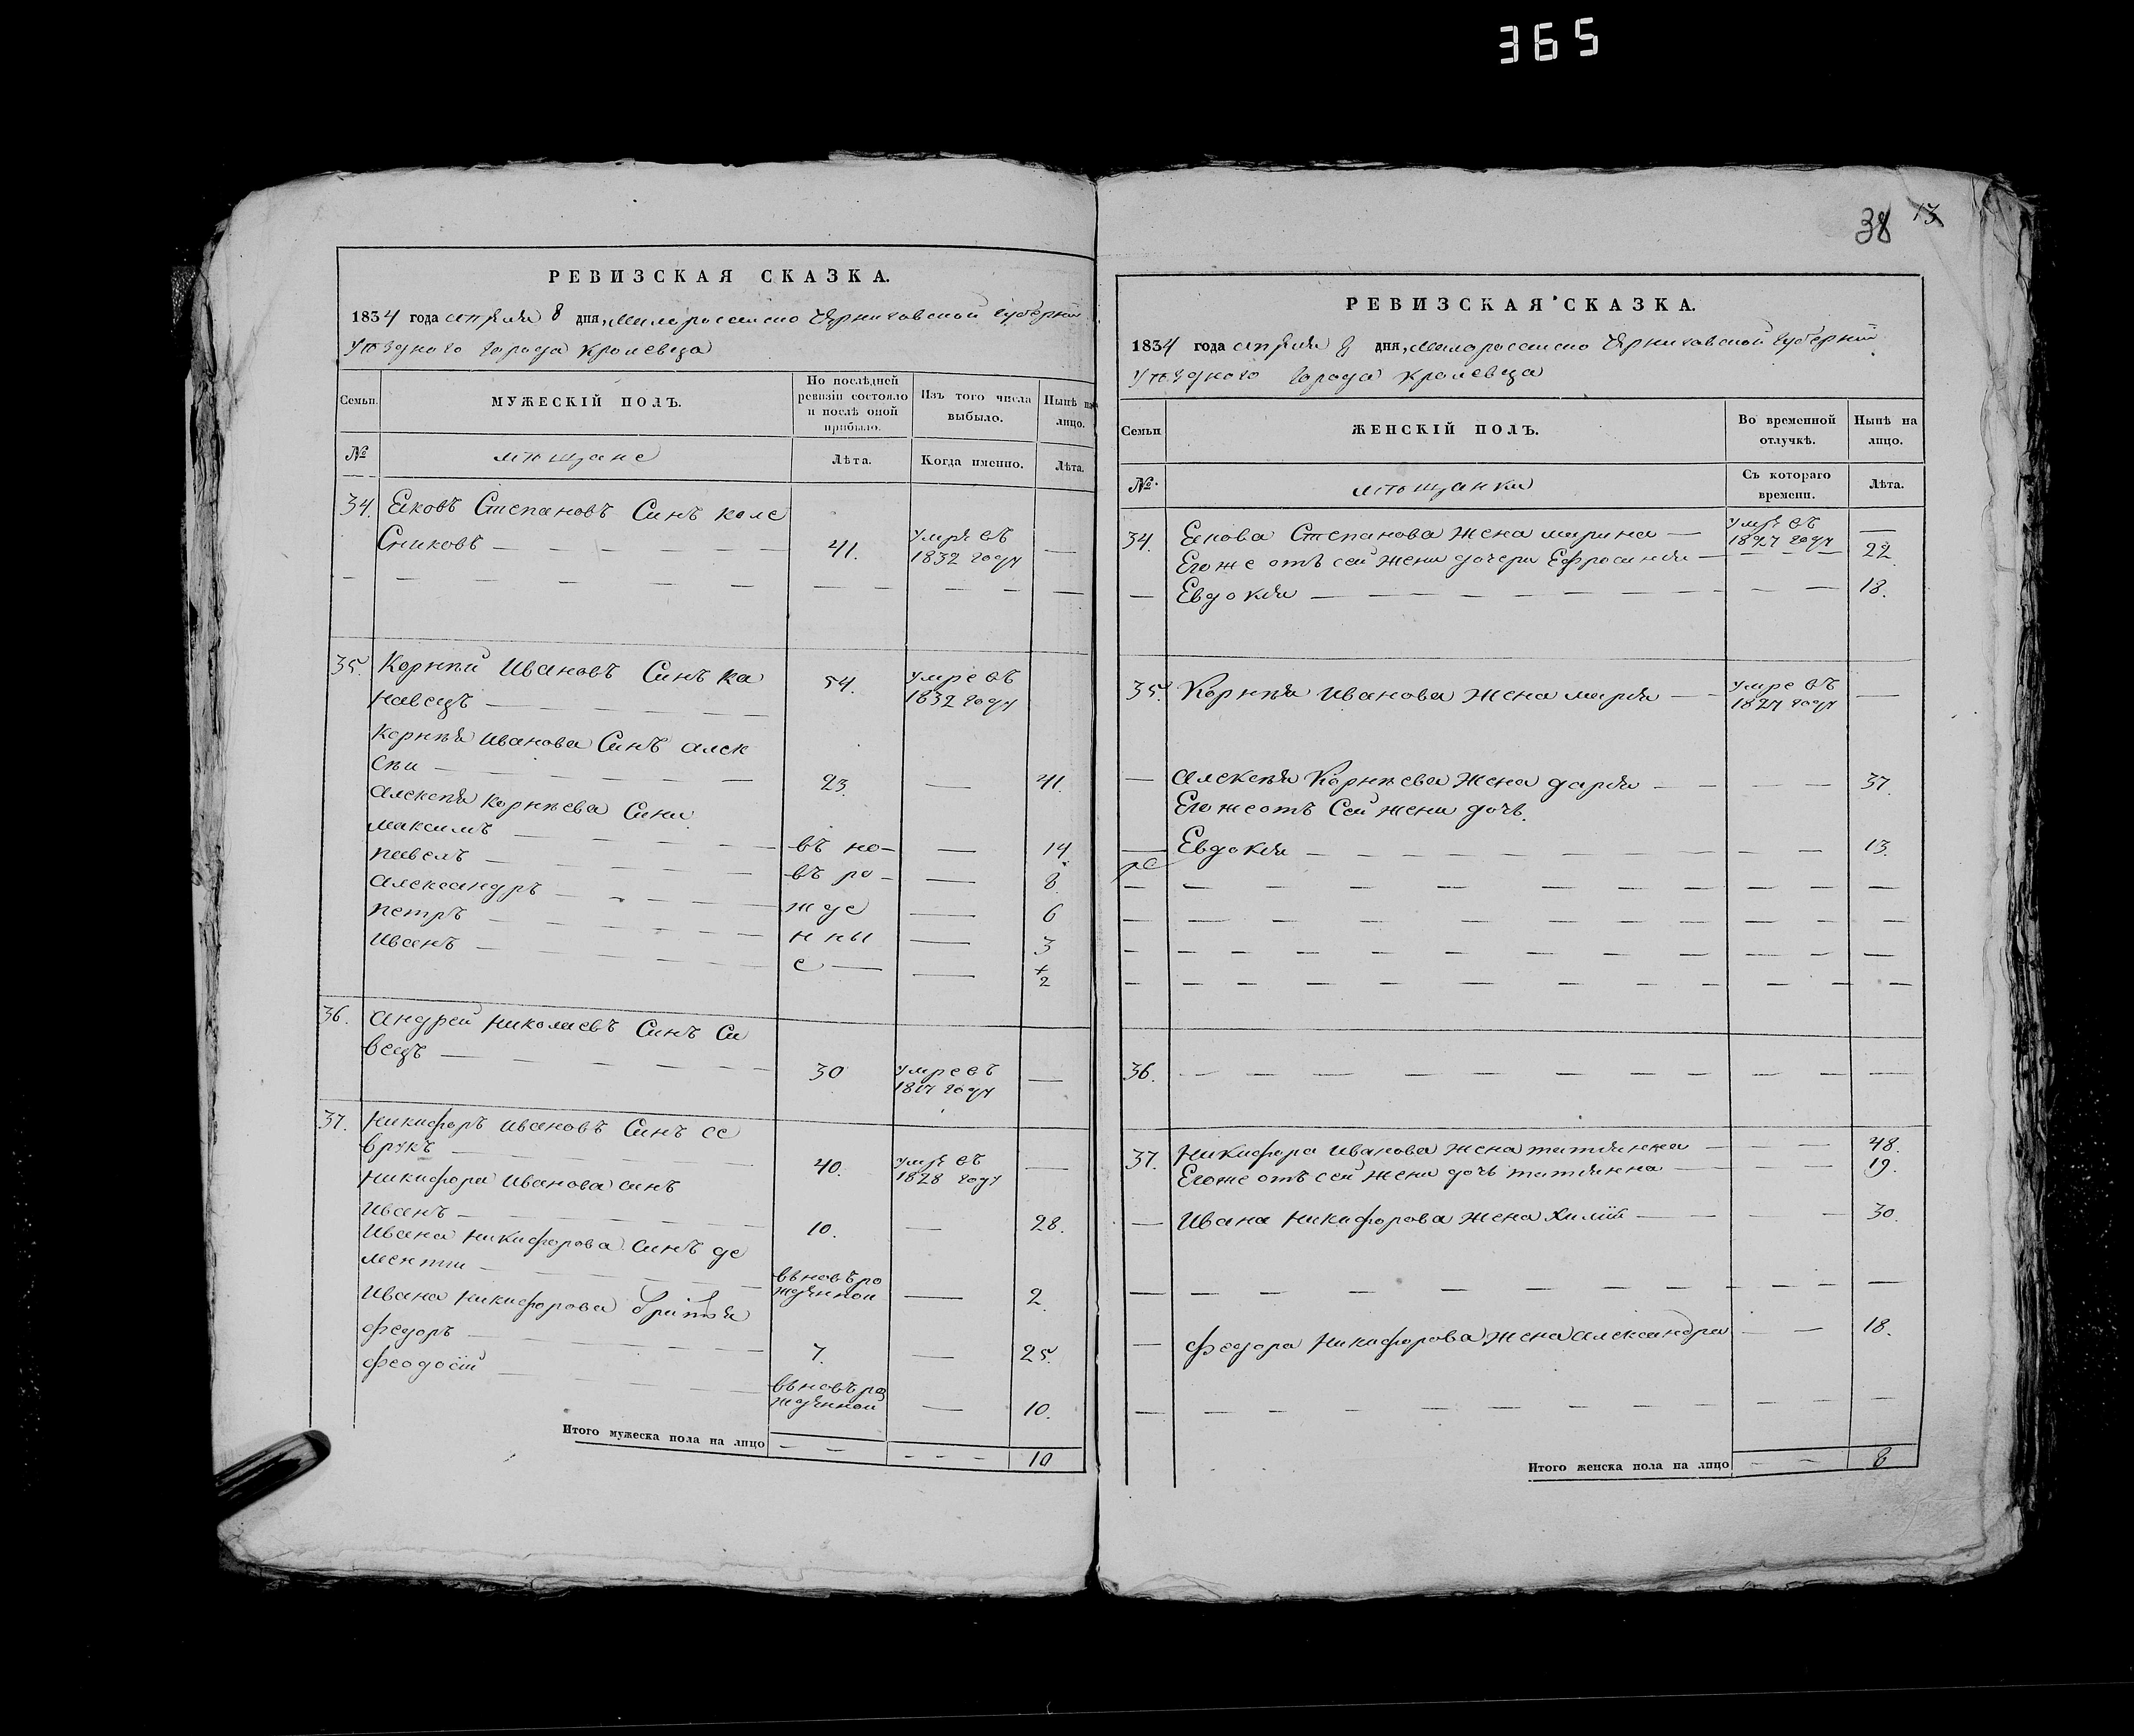 365
38 13
РЕВИЗСКАЯ СКАЗКА.
1834 года апреля 8 дня, Малороссиско Черниговской губерніи
Уѣздного города Кролевца
Семьи. МУЖЕСКІЙ ПОЛЪ. По послѣдней ревизіи состояло и послѣ оной прибыло. Изъ того числа выбыло. Нынѣ на лицо.
№ мѣщане Лѣта. Когда именно. Лѣта.
34. Еаковъ Степановъ Синъ коле
Сниковъ — 41. умре въ 1832 году —
35. Корнѣй Ивановъ Синъ ка
навецъ — 54. умре въ 1832 году
Корнѣя Иванова Синъ алек
сѣи — 23. — 41.
алексѣя Корнѣева Сини
максимъ — въ но- — 14
павелъ — въ ро- — 8
александръ — жде — 6
петръ — нны — 3
Иванъ — е — — 2
36. андрей николаевъ Синъ Си
вецъ — 30 умре въ году —
37. Никифоръ Ивановъ Синъ се
врукъ — 40. умре въ 1828 году —
Никифора Иванова синъ
Иванъ — 10. — 28.
Ивана Никифорова синъ де
ментии — вьновъро жденной — 2.
Ивана Никифорова братья
федоръ — 7. — 25.
феодосій — вьновъро жденной — 10.
Итого мужеска пола на лицо — — — — — 10
РЕВИЗСКАЯ СКАЗКА.
1834 года апреля 8 дня, Малороссиско Черниговской губерніи
Уѣздного города Кролевца
Семьи ЖЕНСКІЙ ПОЛЪ. Во временной отлучкѣ. Нынѣ на лицо.
№ мѣщанки Съ котораго времени. Лѣта.
34. Еакова Степанова жена марина — умре въ 1827 году —
Егоже отъ сей жени дочери Ефросиния — 22.
— Евдокия — 18.
35. Корнѣя Иванова жена мария — умре въ 1827 году —
— алексѣя Корнѣева жена дария — 37.
Егоже отъ Сей жени дочь
— Евдокия — 13.
36. —
37. Никифора Иванова жена татиянна — 48.
Егоже отъ сей жени дочь татиянна — 19.
— Ивана Никифорова жена — 30.
— федора Никифорова жена александра — 18.
Итого женска пола на лицо — — 8